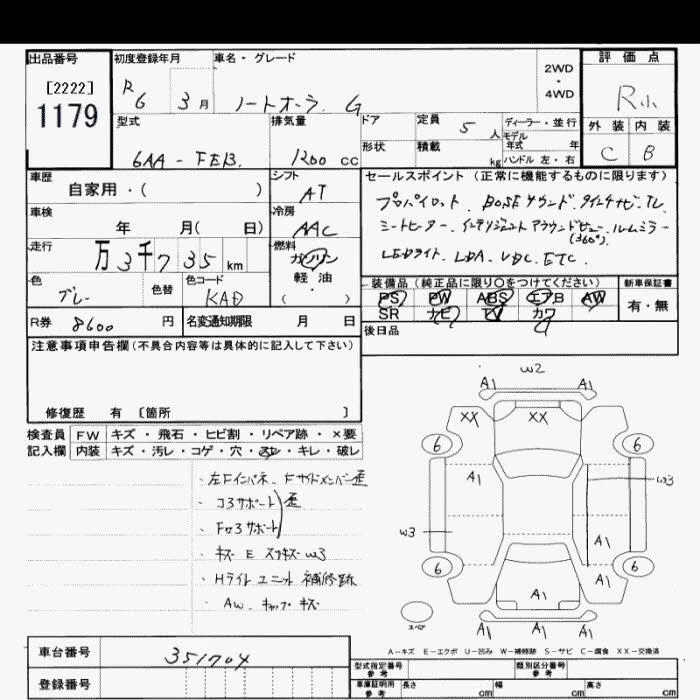 出品番号 初度登録年月 車名・グレード 2WD・4WD 評価点
[2222]
1179
R 6 3月 ノートオーラ G R小
外装 内装
C B
型式 排気量 ドア 定員 5人 ディーラー・並行
モデル年式 年
6AA-FE13 1200cc 形状 積載 kg ハンドル 左・右
車歴 シフト セールスポイント (正常に機能するものに限ります)
自家用・( ) AT
プロパイロット. BOSEサウンド. 9インチナビ. TV
車検 冷房
年 月( 日) AAC
ミートヒーター. インテリジェントアラウンドビュー. ルームミラー
(360°)
走行 燃料
万3千735km ガソリン
軽・油
( )
LEDライト. LDA. VDC. ETC.
色 色替 色コード
グレー KAD
装備品 (純正品に限り○をつけてください) 新車保証書
PS PW ABS エアB AW
SR ナビ TV カワ
有・無
R券 8600円 名変通知期限 月 日
後日品
注意事項申告欄 (不具合内容等は具体的に記入して下さい)
修復歴 有 〔箇所 〕
検査員 FW キズ・飛石・ヒビ割・リペア跡・×要
記入欄 内装 キズ・汚レ・コゲ・穴・スレ・キレ・破レ
・左Fインパネ、Fサイドメンバー歪
・コアサポート 歪
・Fロアサポート
・キズ E スリキズ W3
・Hライト ユニット 補修跡
・AW. キャップ キズ
W2
A1 A1
XX XX
6 6
A1 W3
W3
A1
6 A1 A1 6
スペア
A1 A1 A1
A-キズ E-エクボ U-凹み W-補修跡 S-サビ C-腐食 XX-交換済
車台番号 351704
登録番号
型式指定番号 参考 類別区分番号 参考
車庫証明用 参考 長さ cm 幅 cm 高さ cm